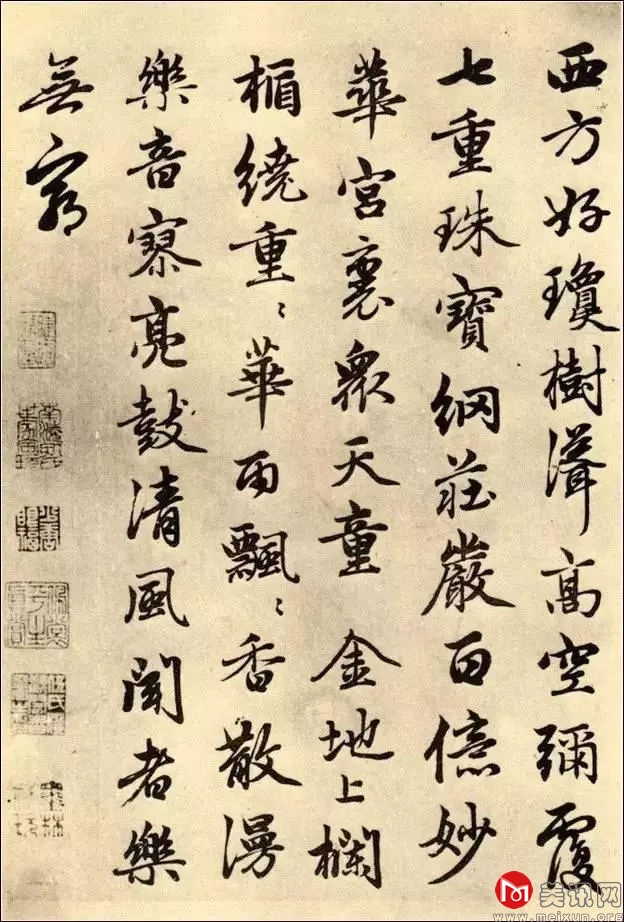 西方好瓊樹聳高空彌覆
七重珠寶綱莊嚴百億妙
華宮裏衆天童 金地上欄
楯繞重〻華雨飄〻香散漫
樂音寥亮鼓清風聞者樂
無窮
美讯网
www.meixun.org